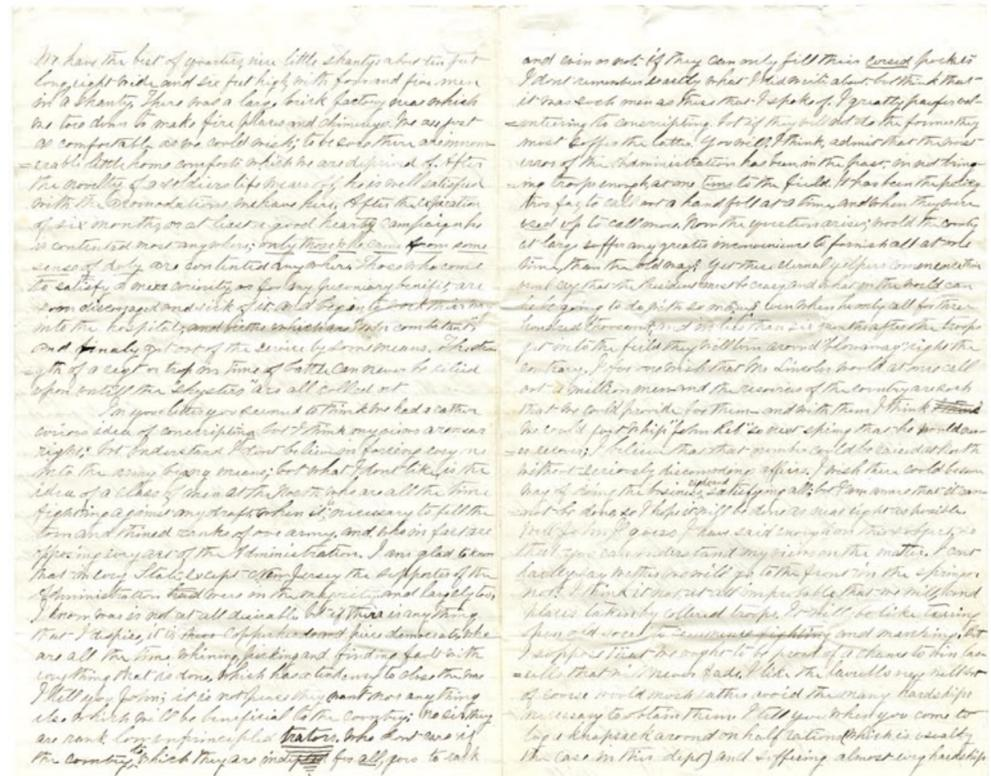 We have the best of quarters, nice little shantys about ten feet
long, eight wide and six feet high, with four and five men
in a shanty. There was a large brick factory near which
we tore down to make fire places and chimneys. We are just
as comfortable as we could wish, to be sure there are innum-
erable little home comforts which we are deprived of. After
the novelty of a soldiers life wears off, he is well satisfied
with the acomodations we have here. After the expiration
of six months, or at least a good hearty campaign he
is contented most anywhere; only those who came from some
sense of duty are contented anywhere. Those who come
to satisfy a mere curiosity or for any pecuniary benefit, are
soon discouraged and sick of it and begin to work their way
into the hospitals,
and finaly get out of the service by some means. The stren
gth of a regt or troop in time of battle can never be relied
upon untill the "skysters" are all culled out
In your letter you seemed to think we had a rather
curious idea of conscripting, but I think my views are near
right; but understand I dont believe in forcing every one
into the army by any means; but what I dont like, is the
idea of a class of men at the North who are all the time
fighting against any draft when it is necessary to fill the
torn and thined ranks of our army, and, who in fact are
opposing every act of the Administration. I am glad to know
that in every State, except New Jersey the supporters of the
Administration
I know war is not at all desirable but if there is any thing
that I dispise, it is those Copperheads and peace democrats, who
are all the time whining, picking and finding fault with
everything that is done, which has a tendency to close the war
I tell you John; it is not peace they want nor any thing
else which will be beneficial to the country; no sir, they
are rank low unprincipled traitors, who dont care if
the country, to which they are indepted for all, goes to rack
and ruin or not: if they can only fill their cursed pockets
I dont remember exactly what I did write about but think that
it was such men as these that I spoke of. I greatly prefer vol-
untiering to conscripting, but if they will not do the former they
must suffer the latter. You will, I think, admit that the most
error of the Administration has been in the past, in not bring-
ing troops enough at one time to the field. It has been the policy
thus far to call out a handfull at a time, and when they were
used up to call more. Now the question arises; would the country
at large suffer any greater inconvenience to furnish all at one
time, than the old way? Yet these eternal yelpers
cry that the President must be crazy and what in the world can
he be going to do with so many; even when he only calls for three
hundred thousand, and in less than six months after the troops
get into the field they will turn around & "blow away" right the
contrary. I for one wish that Mr Lincoln would at once call
out a million men and the resources of the country are such
that we could provide for them and with them I think
we could just whip "John Reb" so next spring that he would nev-
er recover; I believe that that number could be raised at North
without seriously discomoding affairs. I wish there could be some
way of doing the business, satisfying all; but I am aware that it can
not be done, so I hope it will be done as near right as posible
Well John, I guess I have said enough on this subject, so
that you can understand my views on the matter. I cant
hardly say whether we will go to the front in the spring or
not. I think it not at all improbable that we will find
places taken by collered troops. It will be like tearing
open old sores to commence fighting and marching, but
I suppose that we ought to be proud of a chance to win lau-
rells that will never fade. I like the laurells very well but
of course would much rather avoid the many hardships
necessary to obtain them. I tell you when you come to
lug a knapsack around on half rations (which is usualy
the case in this dept) and suffering almost every hardship